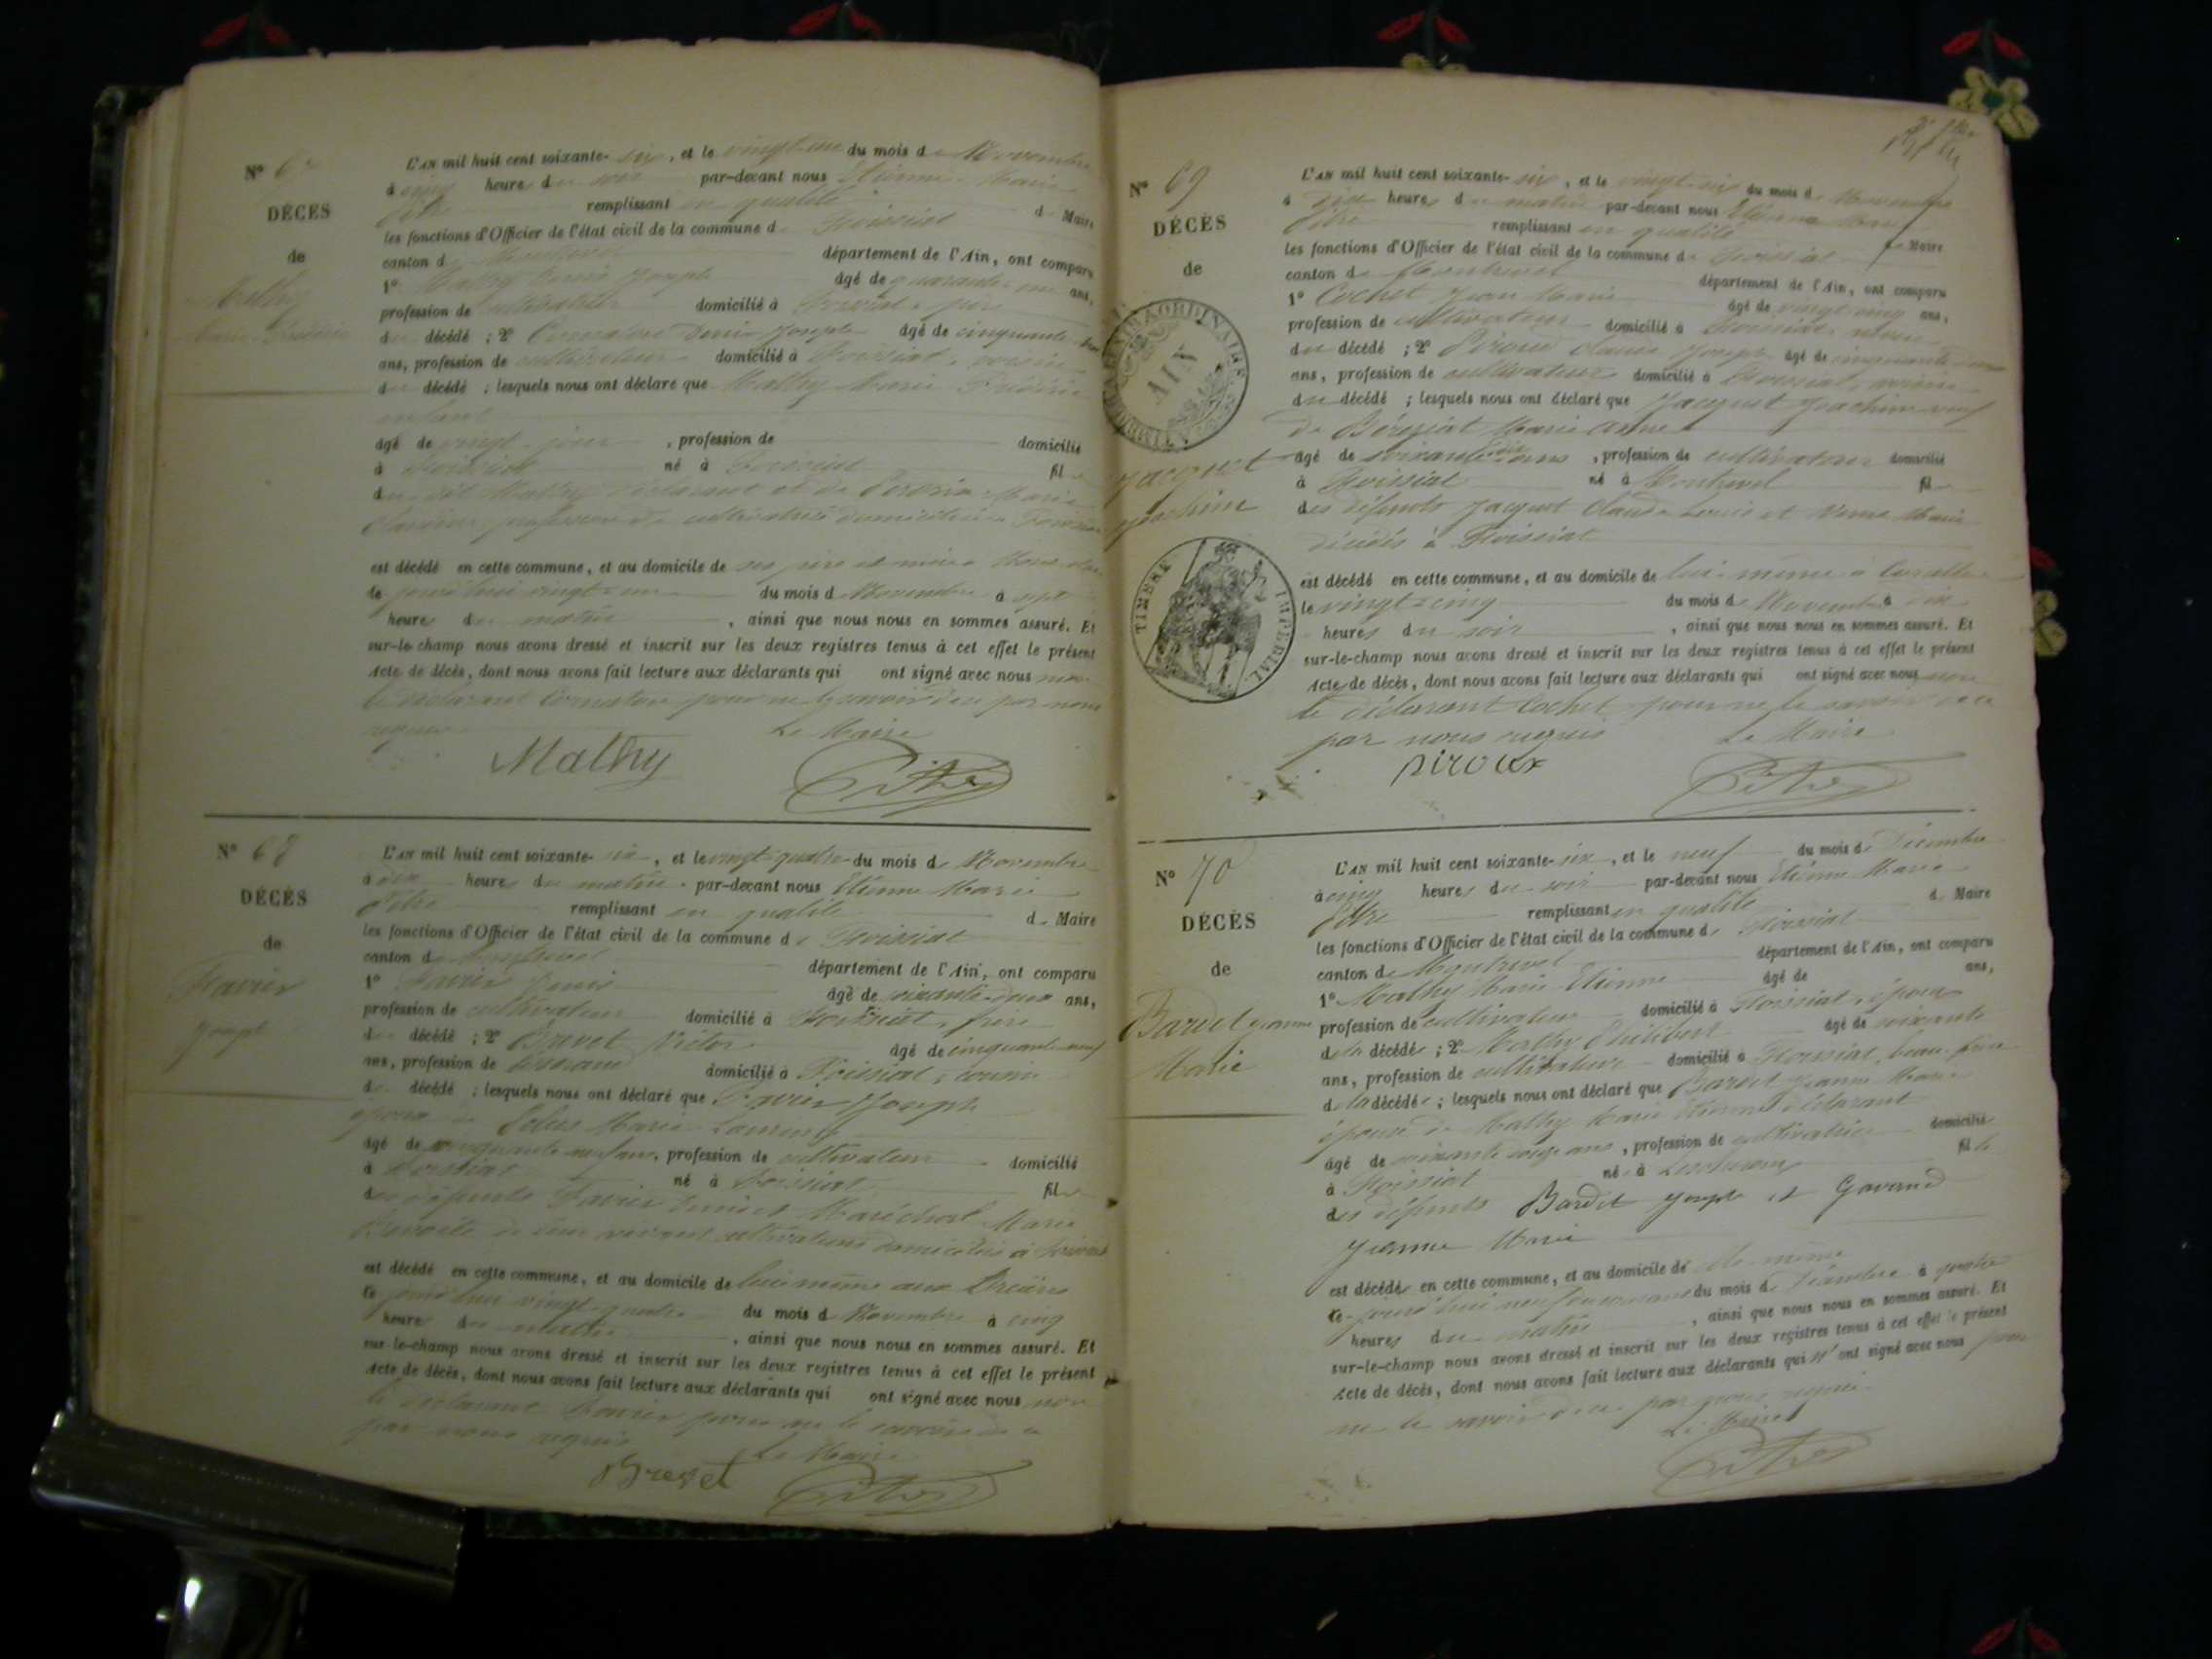 N° 67
DÉCÈS
de
Mathy
L'AN mil huit cent soixante-six, et le vingt-un du mois de Novembre
à cinq heures du soir par-devant nous Etienne Marie
Pitre remplissant en qualité de Maire
les fonctions d'Officier de l'état civil de la commune de Foissiat
canton de Montrevel département de l'Ain, ont comparu
1° Mathy Joseph âgé de quarante ans,
profession de cultivateur domicilié à Foissiat, père
du décédé ; 2° Denis Joseph âgé de cinquante
ans, profession de cultivateur domicilié à Foissiat, voisin
du décédé ; lesquels nous ont déclaré que Mathy Marie
enfant
âgé de vingt jours, profession de domicilié
à Foissiat né à Foissiat fil
du dit Mathy déclarant et de Marie
Claudine, profession de cultivatrice domiciliée à Foissiat
est décédé en cette commune, et au domicile de ses père et mère
le jourd'hui vingt-un du mois de Novembre à sept
heures du matin, ainsi que nous nous en sommes assuré. Et
sur-le-champ nous avons dressé et inscrit sur les deux registres tenus à cet effet le présent
Acte de décès, dont nous avons fait lecture aux déclarants qui ont signé avec nous non
le déclarant pour ne le savoir de ce par nous
requis Le Maire
Mathy Pitre
N° 68
DÉCÈS
de
Favier
Joseph
L'AN mil huit cent soixante-six, et le vingt-quatre du mois de Novembre
à dix heures du matin par-devant nous Etienne Marie
Pitre remplissant en qualité de Maire
les fonctions d'Officier de l'état civil de la commune de Foissiat
canton de Montrevel département de l'Ain, ont comparu
1° Favier Denis âgé de soixante-deux ans,
profession de cultivateur domicilié à Foissiat, frère
du décédé ; 2° Brevet Victor âgé de cinquante-neuf
ans, profession de tisserand domicilié à Foissiat, cousin
du décédé ; lesquels nous ont déclaré que Favier Joseph
époux de Marie Laurence
âgé de cinquante-neuf ans, profession de cultivateur domicilié
à Foissiat né à Foissiat fils
des défunts Favier Denis et Maréchal Marie
de leur vivant cultivateurs domiciliés à Foissiat
est décédé en cette commune, et au domicile de lui-même aux
le jourd'hui vingt-quatre du mois de Novembre à cinq
heures du matin, ainsi que nous nous en sommes assuré. Et
sur-le-champ nous avons dressé et inscrit sur les deux registres tenus à cet effet le présent
Acte de décès, dont nous avons fait lecture aux déclarants qui ont signé avec nous non
le déclarant Favier pour ne le savoir de ce
par nous requis Le Maire
Brevet Pitre
N° 69
DÉCÈS
de
TIMBRE EXTRAORDINAIRE
AIN
Jacquet
Joachim
TIMBRE IMPERIAL
L'AN mil huit cent soixante-six, et le vingt-six du mois de Novembre
à dix heures du matin par-devant nous Etienne Marie
Pitre remplissant en qualité de Maire
les fonctions d'Officier de l'état civil de la commune de Foissiat
canton de Montrevel département de l'Ain, ont comparu
1° Cochet Jean Marie âgé de vingt-cinq ans,
profession de cultivateur domicilié à Foissiat, neveu
du décédé ; 2° Piroux Claude Joseph âgé de cinquante
ans, profession de cultivateur domicilié à Foissiat, voisin
du décédé ; lesquels nous ont déclaré que Jacquet Joachim veuf
de Béréziat Marie Anne
âgé de soixante ans, profession de cultivateur domicilié
à Foissiat né à Montrevel fils
des défunts Jacquet Claude Louis et Marie
décédés à Foissiat
est décédé en cette commune, et au domicile de lui-même à
le vingt-cinq du mois de Novembre à
heures du soir, ainsi que nous nous en sommes assuré. Et
sur-le-champ nous avons dressé et inscrit sur les deux registres tenus à cet effet le présent
Acte de décès, dont nous avons fait lecture aux déclarants qui ont signé avec nous non
le déclarant Cochet pour ne le savoir de ce
par nous requis Le Maire
piroux Pitre
N° 70
DÉCÈS
de
Bardet Jeanne
Marie
L'AN mil huit cent soixante-six, et le neuf du mois de Décembre
à cinq heures du soir par-devant nous Etienne Marie
Pitre remplissant en qualité de Maire
les fonctions d'Officier de l'état civil de la commune de Foissiat
canton de Montrevel département de l'Ain, ont comparu
1° Mathy Marie Etienne âgé de ans,
profession de cultivateur domicilié à Foissiat, époux
de la décédée ; 2° Mathy Philibert âgé de soixante
ans, profession de cultivateur domicilié à Foissiat, beau-frère
de la décédée ; lesquels nous ont déclaré que Bardet Jeanne Marie
épouse de Mathy Marie Etienne déclarant
âgé de soixante ans, profession de cultivatrice domicilié
à Foissiat née à Lescheroux fille
des défunts Bardet Joseph et Gavand
Jeanne Marie
est décédée en cette commune, et au domicile de elle-même
le jourd'hui neuf du mois de Décembre à quatre
heures du matin, ainsi que nous nous en sommes assuré. Et
sur-le-champ nous avons dressé et inscrit sur les deux registres tenus à cet effet le présent
Acte de décès, dont nous avons fait lecture aux déclarants qui n'ont signé avec nous pour
ne le savoir de ce par nous requis
Le Maire
Pitre